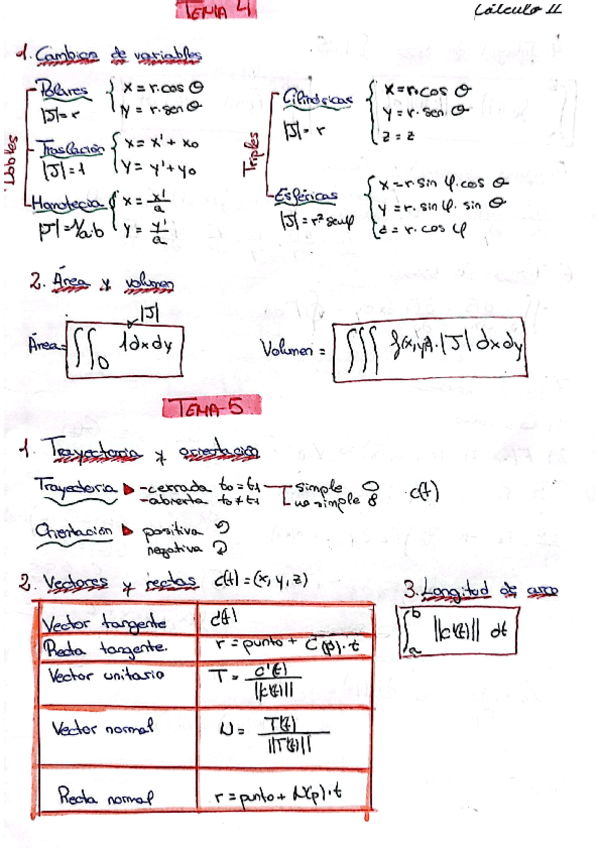 TEMA 4
Cálculo II
1. Cambios de variables
Dobles
Polares
x = r·cos θ
y = r·sen θ
|J| = r
Traslación
x = x' + x₀
y = y' + y₀
|J| = 1
Homotecia
x = x'/a
y = y'/a
|J| = 1/a·b
Triples
Cilíndricas
x = r·cos θ
y = r·sen θ
z = z
|J| = r
Esféricas
x = r·sin φ·cos θ
y = r·sin φ·sin θ
z = r·cos φ
|J| = r² sen φ
2. Área y volumen
|J|
Área = ∬_D 1 dx dy
Volumen = ∭ f(x,y)·|J| dx dy
TEMA 5
1. Trayectoria y orientación
Trayectoria - cerrada t₀ = t₁ simple
- abierta t₀ ≠ t₁ no simple
c(t)
Orientación positiva
negativa
2. Vectores y rectas c(t) = (x, y, z)
Vector tangente c'(t)
Recta tangente. r = punto + c'(p)·t
Vector unitario T = c'(t)/||c'(t)||
Vector normal N = T'(t)/||T'(t)||
Recta normal r = punto + N(p)·t
3. Longitud de arco
∫_a^b ||c'(t)|| dt